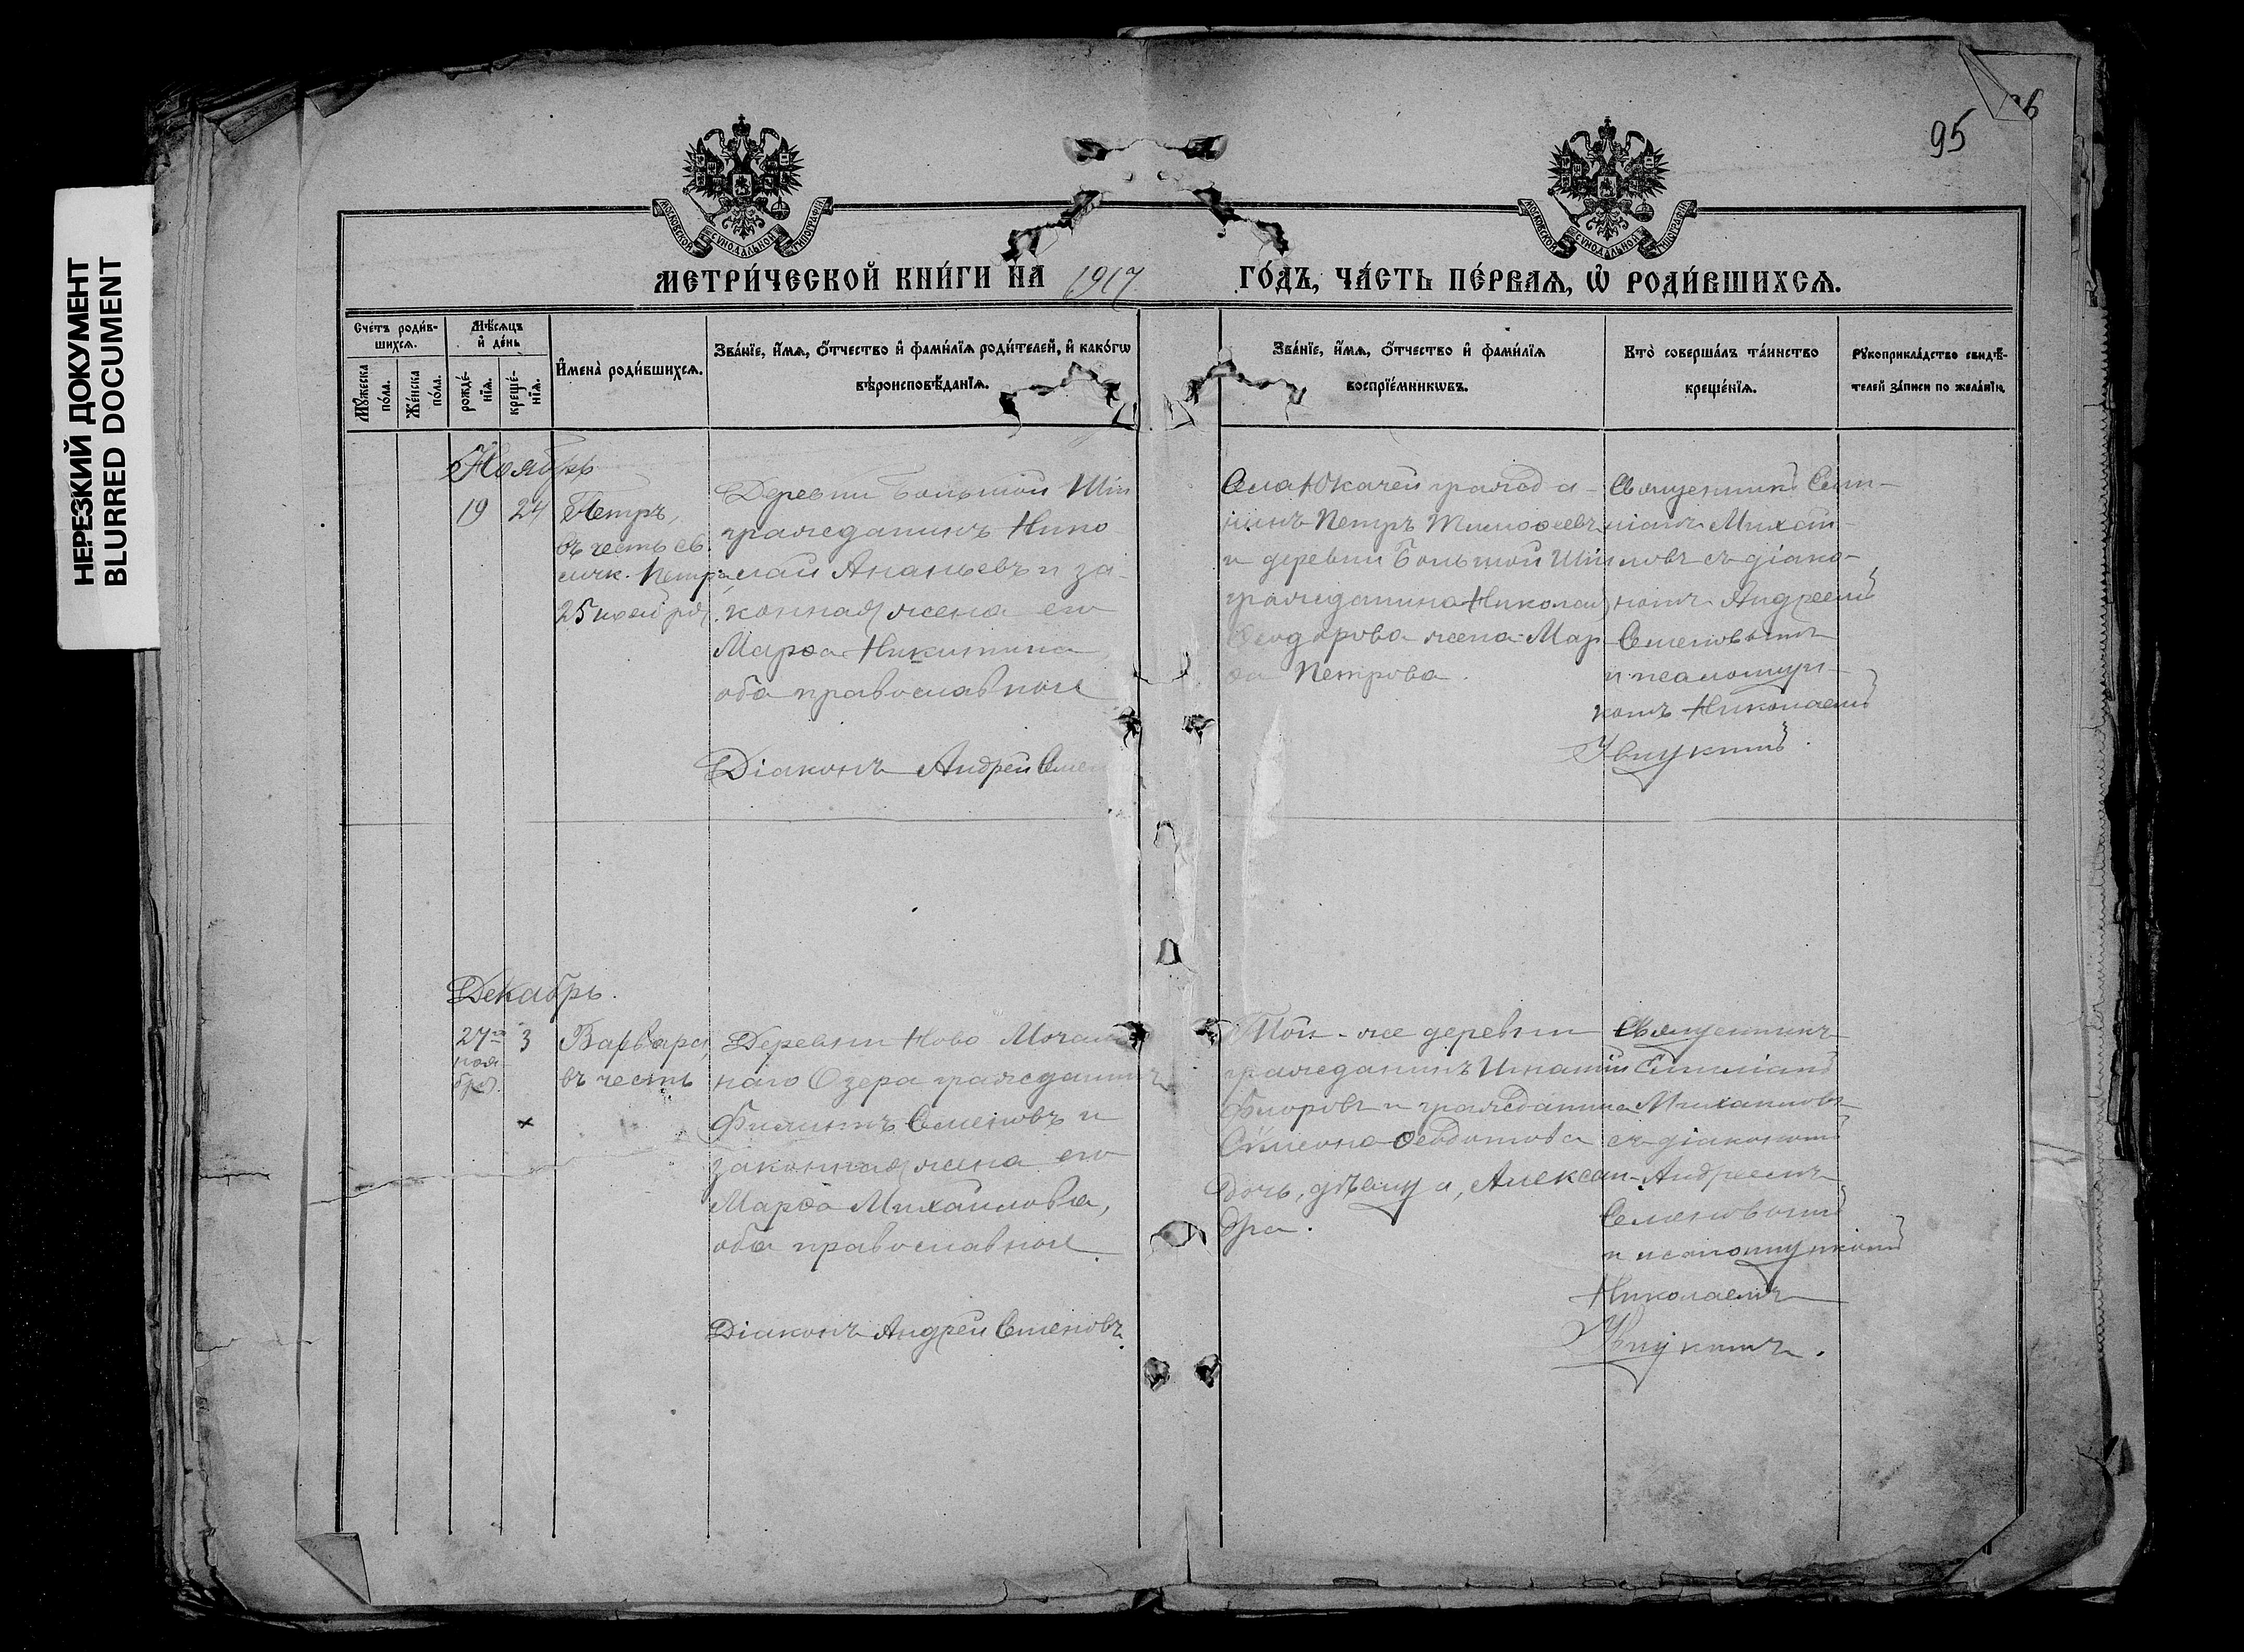 НЕРЕЗКИЙ ДОКУМЕНТ
BLURRED DOCUMENT
95
МОСКОВСКОЙ СѴНОДАЛЬНОЙ ТИПОГРАФІИ
МОСКОВСКОЙ СѴНОДАЛЬНОЙ ТИПОГРАФІИ
МЕТРИ́ЧЕСКОЙ КНИ́ГИ НА 1917 ГО́ДЪ, ЧА́СТЬ ПЕ́РВАѦ, Ѡ РОДИ́ВШИХСѦ.
Сче́тъ роди́в-
шихсѧ.
Мꙋ́жеска
по́ла.
Же́нска
по́ла.
Мѣ́сѧцъ
и҆ де́нь
рожде́-
нїѧ.
креще́-
нїѧ.
И҆мена̀ роди́вшихсѧ.
Зва́нїе, и҆́мѧ, ѻ҆́тчество и҆ фами́лїѧ роди́телей, и҆ како́гѡ
вѣроисповѣ́данїѧ.
Зва́нїе, и҆́мѧ, ѻ҆́тчество и҆ фами́лїѧ
воспрїе́мникѡвъ.
Кто̀ соверша́лъ та́инство
креще́нїѧ.
Рꙋкоприкла́дство свидѣ́-
телей за́писи по жела́нїю.
Ноябрь
19 24
Петръ,
въ честь св.
смчк. Петра
25 ноября.
Деревни Большой Ши
гражданинъ Нико
лай Ананьевъ и за-
конная жена его
Марѳа Никитина
оба православные
Діаконъ Андрей Семен
Села Юкачей гражда-
нинъ Петръ Тимоѳеевъ
и деревни Большой Ши
гражданина Николая
Ѳеодорова жена Мар
ѳа Петрова.
Священникъ Еми-
ліанъ Михай-
ловъ съ діако-
номъ Андреемъ
Семеновымъ
и псаломщи-
комъ Николаемъ
Декабрь.
27го 3
ноя
бря.
Варвара
въ честь
Деревни Ново Мочаль
наго Озера гражданинъ
Филиппъ Семеновъ и
законная жена его
Марѳа Михайлова,
оба православные.
Діаконъ Андрей Семеновъ.
Той-же деревни
гражданинъ Игнатій
Флоровъ и гражданина
Симеона Ѳеодотова
дочь, дѣвица, Алексан-
дра.
Священникъ
Емиліанъ
Михайловъ
съ діакономъ
Андреемъ
Семеновымъ
и псаломщикомъ
Николаемъ